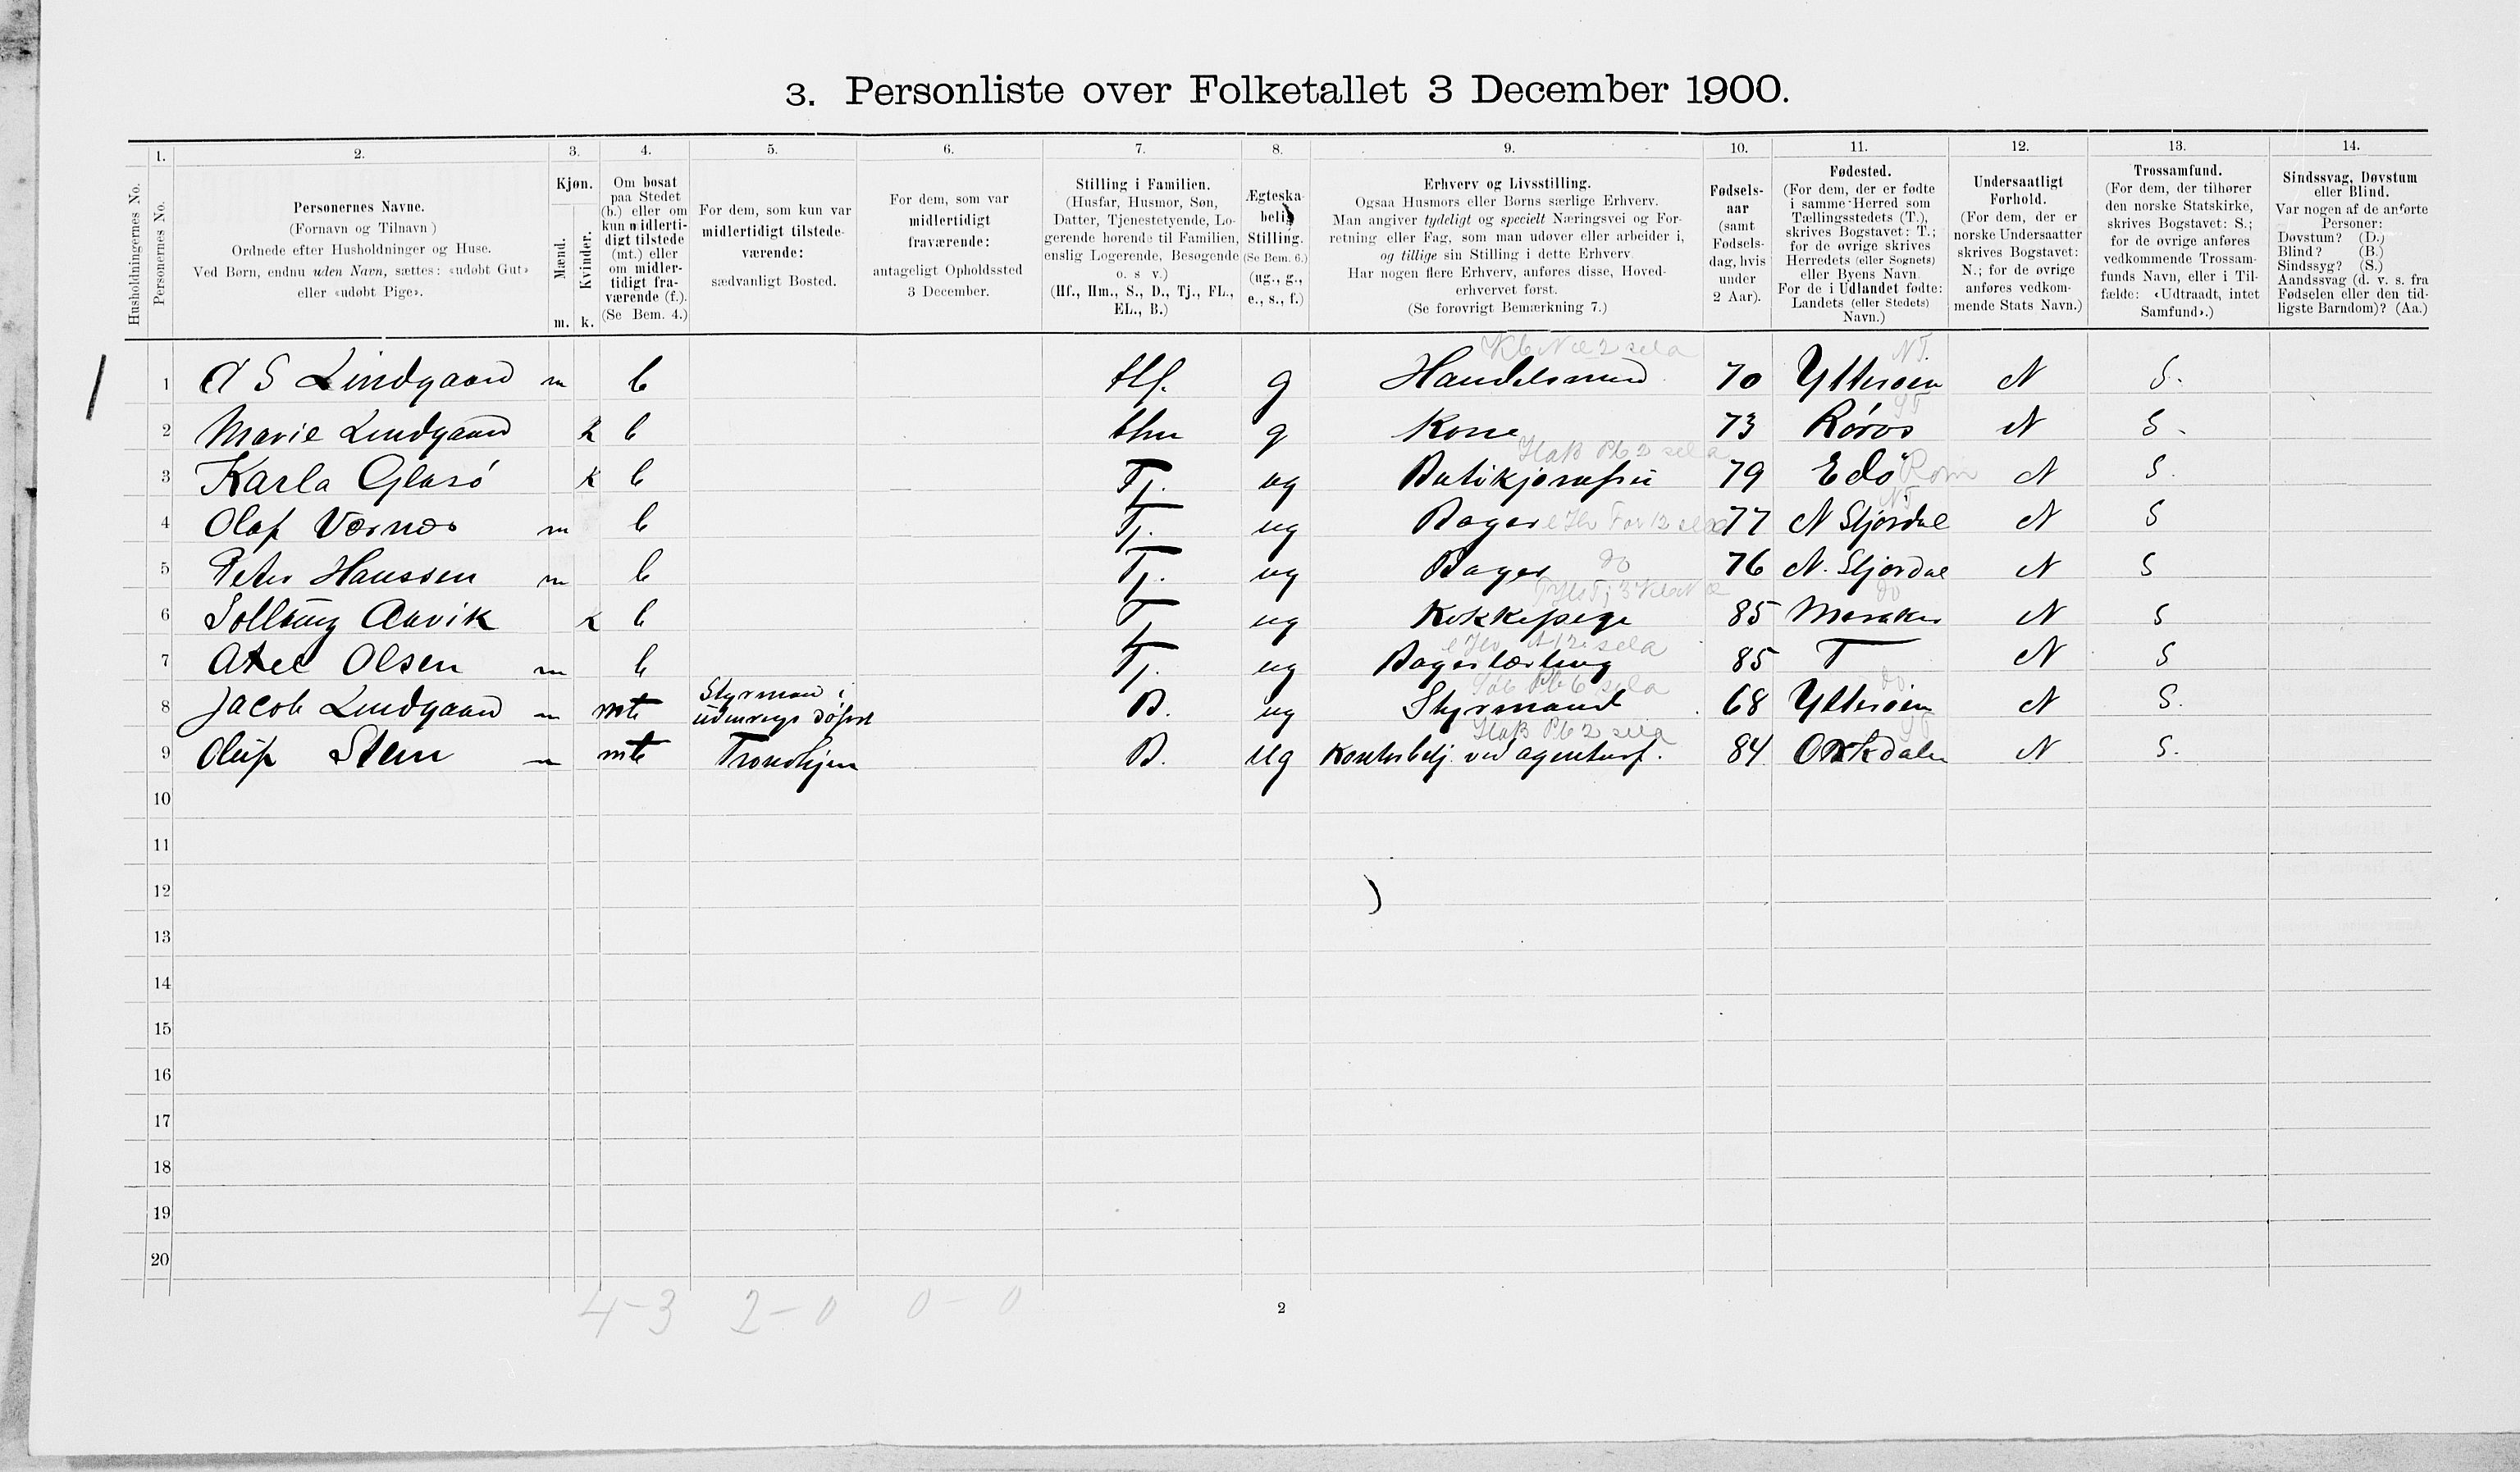 3. Personliste over Folketallet 3 December 1900.
1. 2. 3. 4. 5. 6. 7. 8. 9. 10. 11. 12. 13. 14.
Husholdningernes No.
Personernes No.
Personernes Navne.
(Fornavn og Tilnavn)
Ordnede efter Husholdninger og Huse.
Ved Børn, endnu uden Navn, sættes: «udøbt Gut»
eller «udøbt Pige».
Kjøn.
Mænd.
Kvinder.
m. k.
Om bosat
paa Stedet
(b.) eller om
kun midlerti-
digt tilstede
(mt.) eller
om midler-
tidigt fra-
værende (f.).
(Se Bem. 4.)
For dem, som kun var
midlertidigt tilstede-
værende:
sædvanligt Bosted.
For dem, som var
midlertidigt
fraværende:
antageligt Opholdssted
3 December.
Stilling i Familien.
(Husfar, Husmor, Søn,
Datter, Tjenestetyende, Lo-
gerende hørende til Familien,
enslig Logerende, Besøgende
o. s v.)
(Hf., Hm., S., D., Tj., FL.,
EL., B.)
Ægteska-
belig
Stilling.
(Se Bem. 6.)
(ug., g.,
e., s., f.)
Erhverv og Livsstilling.
Ogsaa Husmors eller Børns særlige Erhverv.
Man angiver tydeligt og specielt Næringsvei og For-
retning eller Fag, som man udøver eller arbeider i,
og tillige sin Stilling i dette Erhverv.
Har nogen flere Erhverv, anføres disse, Hoved-
erhvervet først.
(Se forøvrigt Bemærkning 7.)
Fødsels-
aar
(samt
Fødsels-
dag, hvis
under
2 Aar).
Fødested.
(For dem, der er fødte
i samme Herred som
Tællingsstedets (T.),
skrives Bogstavet: T.;
for de øvrige skrives
Herredets (eller Sognets)
eller Byens Navn.
For de i Udlandet fødte:
Landets (eller Stedets)
Navn.)
Undersaatligt
Forhold.
(For dem, der er
norske Undersaatter
skrives Bogstavet:
N.; for de øvrige
anføres vedkom-
mende Stats Navn.)
Trossamfund.
(For dem, der tilhører
den norske Statskirke,
skrives Bogstavet: S.;
for de øvrige anføres
vedkommende Trossam-
funds Navn, eller i Til-
fælde: «Udtraadt, intet
Samfund».)
Sindssvag, Døvstum
eller Blind.
Var nogen af de anførte
Personer:
Døvstum? (D.)
Blind? (B.)
Sindssyg? (S.)
Aandssvag (d. v. s. fra
Fødselen eller den tid-
ligste Barndom)? (Aa.)
N T.
1 S Lindgaard m b Hf. g Handelsmand 70 Ytterøen N S.
S T
2 Marie Lindgaard k b Hm g Kone 73 Røros N S.
3 Karla Glasø k b Tj. ug Butikjomfru 79 Edø Rom N S.
N T
4 Olaf Værnes m b Tj. ug Bager 77 N Stjørdal N S
do
5 Peter Hanssen m b Tj. ug Bager 76 N. Stjørdal N S
do
6 Aavik k b Tj ug Kokkepige 85 Meraker N S
7 Axel Olsen m b Tj. ug Bagerlærling 85 T N S
do
8 Jacob Lindgaard m mt Styrmand i udenrigs B. ug Styrmand 68 Ytterøen N S.
S T
9 Oluf Sten m mt Trondhjem B. ug Kontorbetj. ved agenturf. 84 Orkdalen N S.
10
11
12
13
14
15
16
17
18
19
20
4-3 2-0 0-0
2